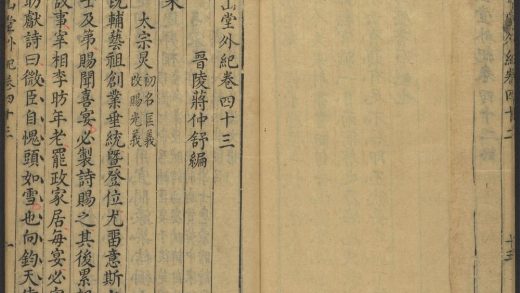 外紀卷四十二
十三
山堂外紀卷四十三
晉陵蔣仲舒編
太宗炅
初名匡義
改賜光義
既輔藝祖創業垂統暨登位尤畱意斯
士及第賜聞喜宴必製詩賜之其後累
故事宰相李昉年老罷政家居每宴必
昉獻詩曰微臣自愧頭如雪也向鈞天
山堂外紀卷四十三
一